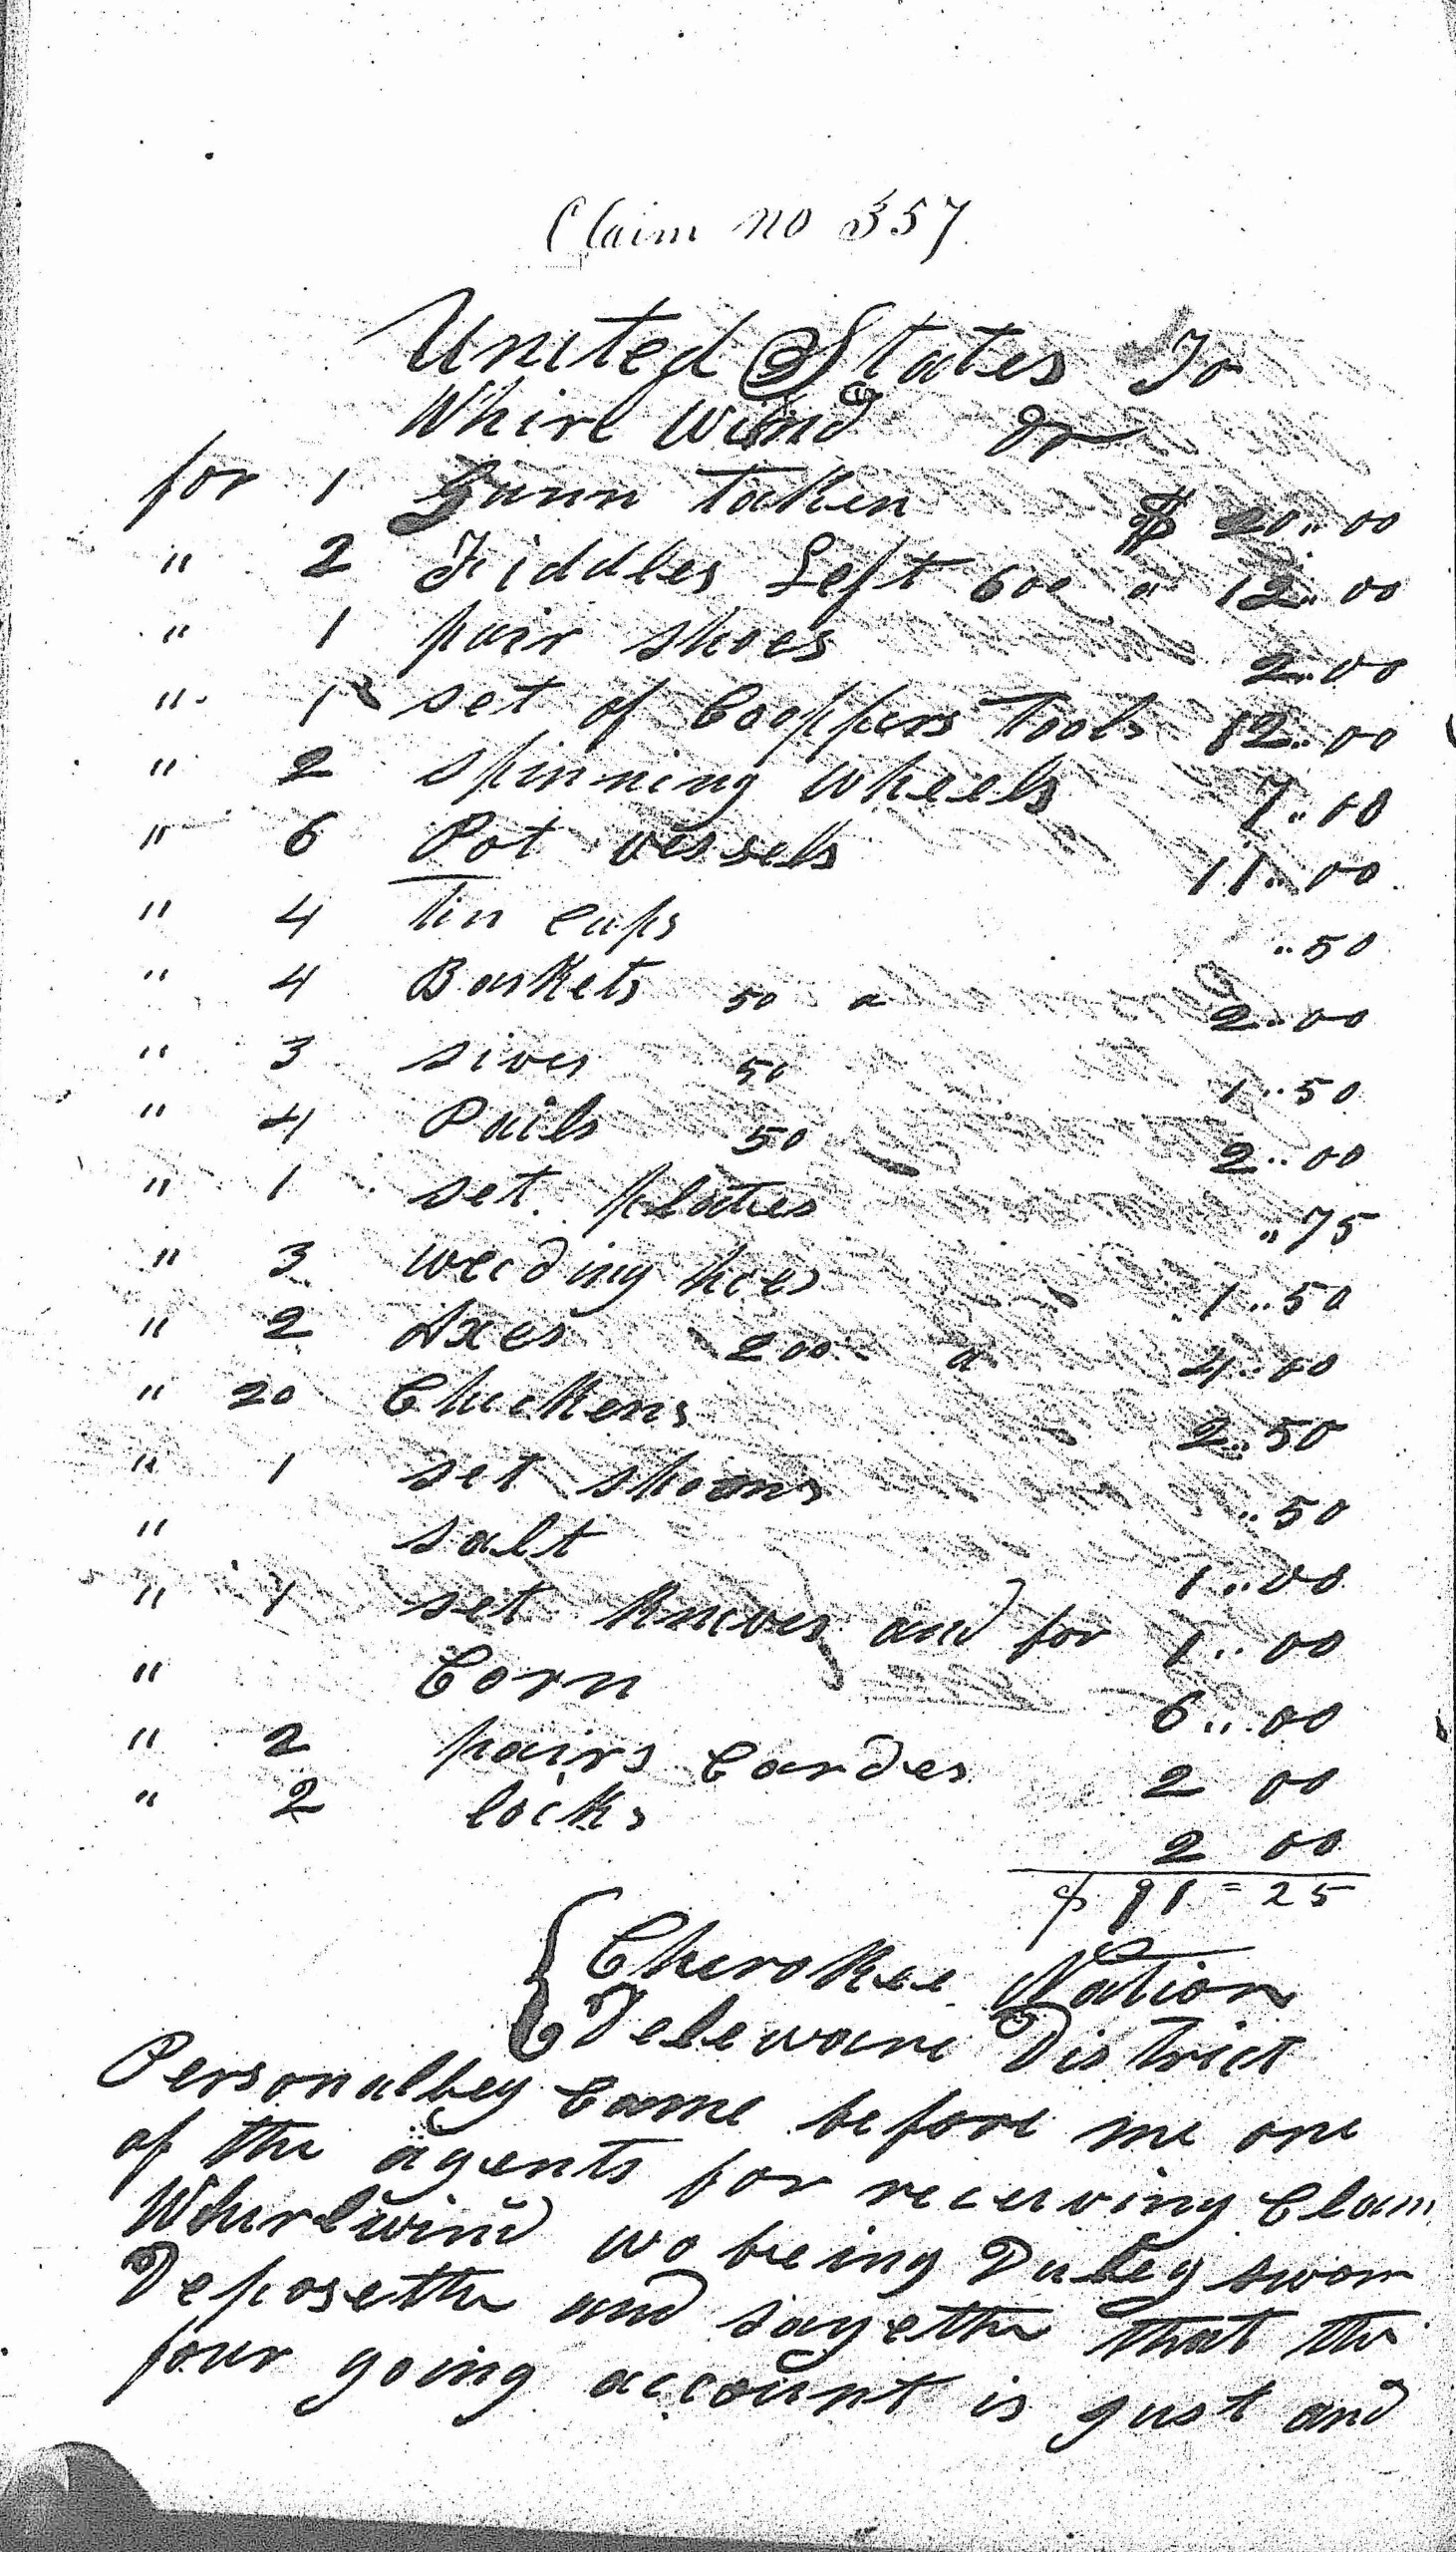 Claim no 357
United States To
Whirl Wind Dr
for 1 Gunn taken $ 20..00
" 2 Fiddles Left 600 a 12..00
" 1 pair shoes 2..00
" 1 set of Cooppers Tools 12..00
" 2 spinning wheels 7..00
" 6 Pot vessels 11..00
" 4 tin cups ..50
" 4 Baskets 50 a 2..00
" 3 sives 50 1..50
" 4 Pails 50 2..00
" 1 set plates ..75
" 3 weeding hoes 1..50
" 2 Axes 200 a 4..00
" 20 Chickens 2..50
" 1 set spoons ..50
" salt 1..00
" 1 set knives and for 1..00
" Corn 6..00
" 2 pairs Cardes 2 00
" 2 locks 2 00
$ 91 = 25
Cherokee Nation
Deleware District
Personalley Came before me one
of the agents for receiving Claim
Whirlwind wo being Duley sworn
Deposeth and sayeth that the
four going account is gust and